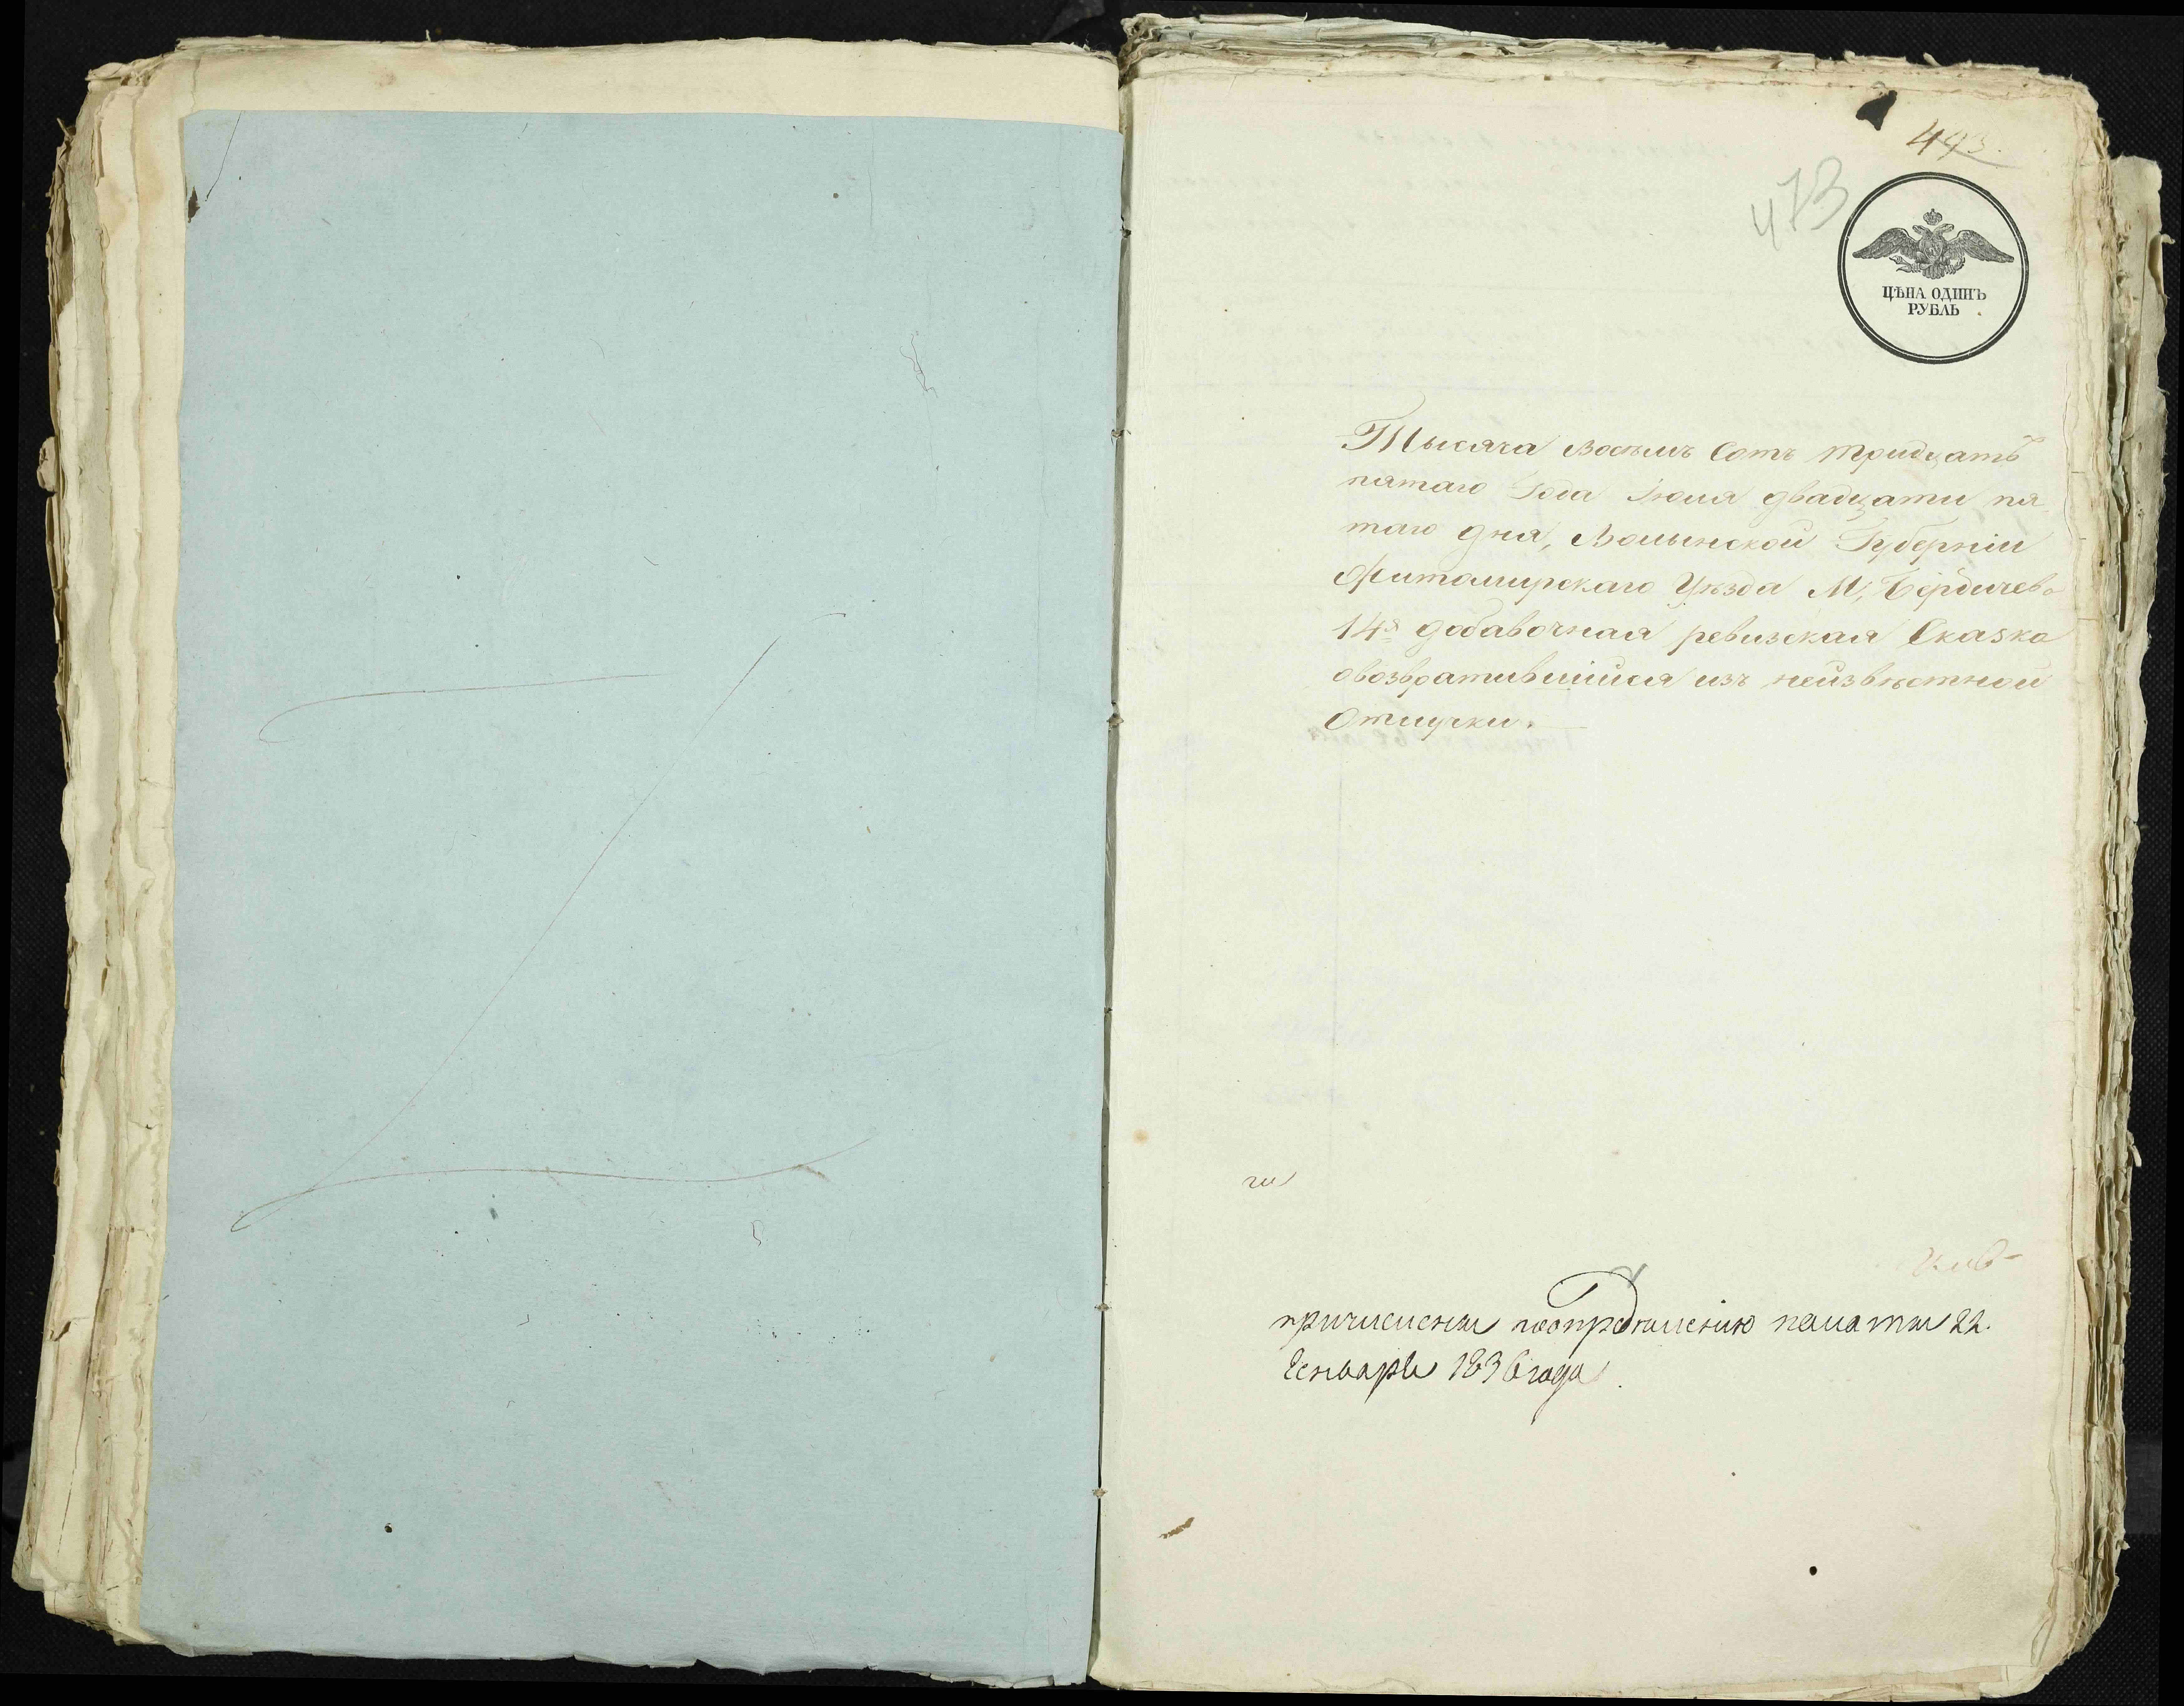 493.
473
ЦѢНА ОДИНЪ
РУБЛЬ
Тысяча восемь Сотъ тридцать
пятаго Года Іюля двадцати пя
таго дня, Волынской Губерніи
Житомирскаго Уѣзда М, Бердичева
14я добавочная ревизская Сказка
овозвратившийся изъ неизвѣстной
Отлучки.
причислены поопредѣленію палаты 22.
Генваря 1836 года